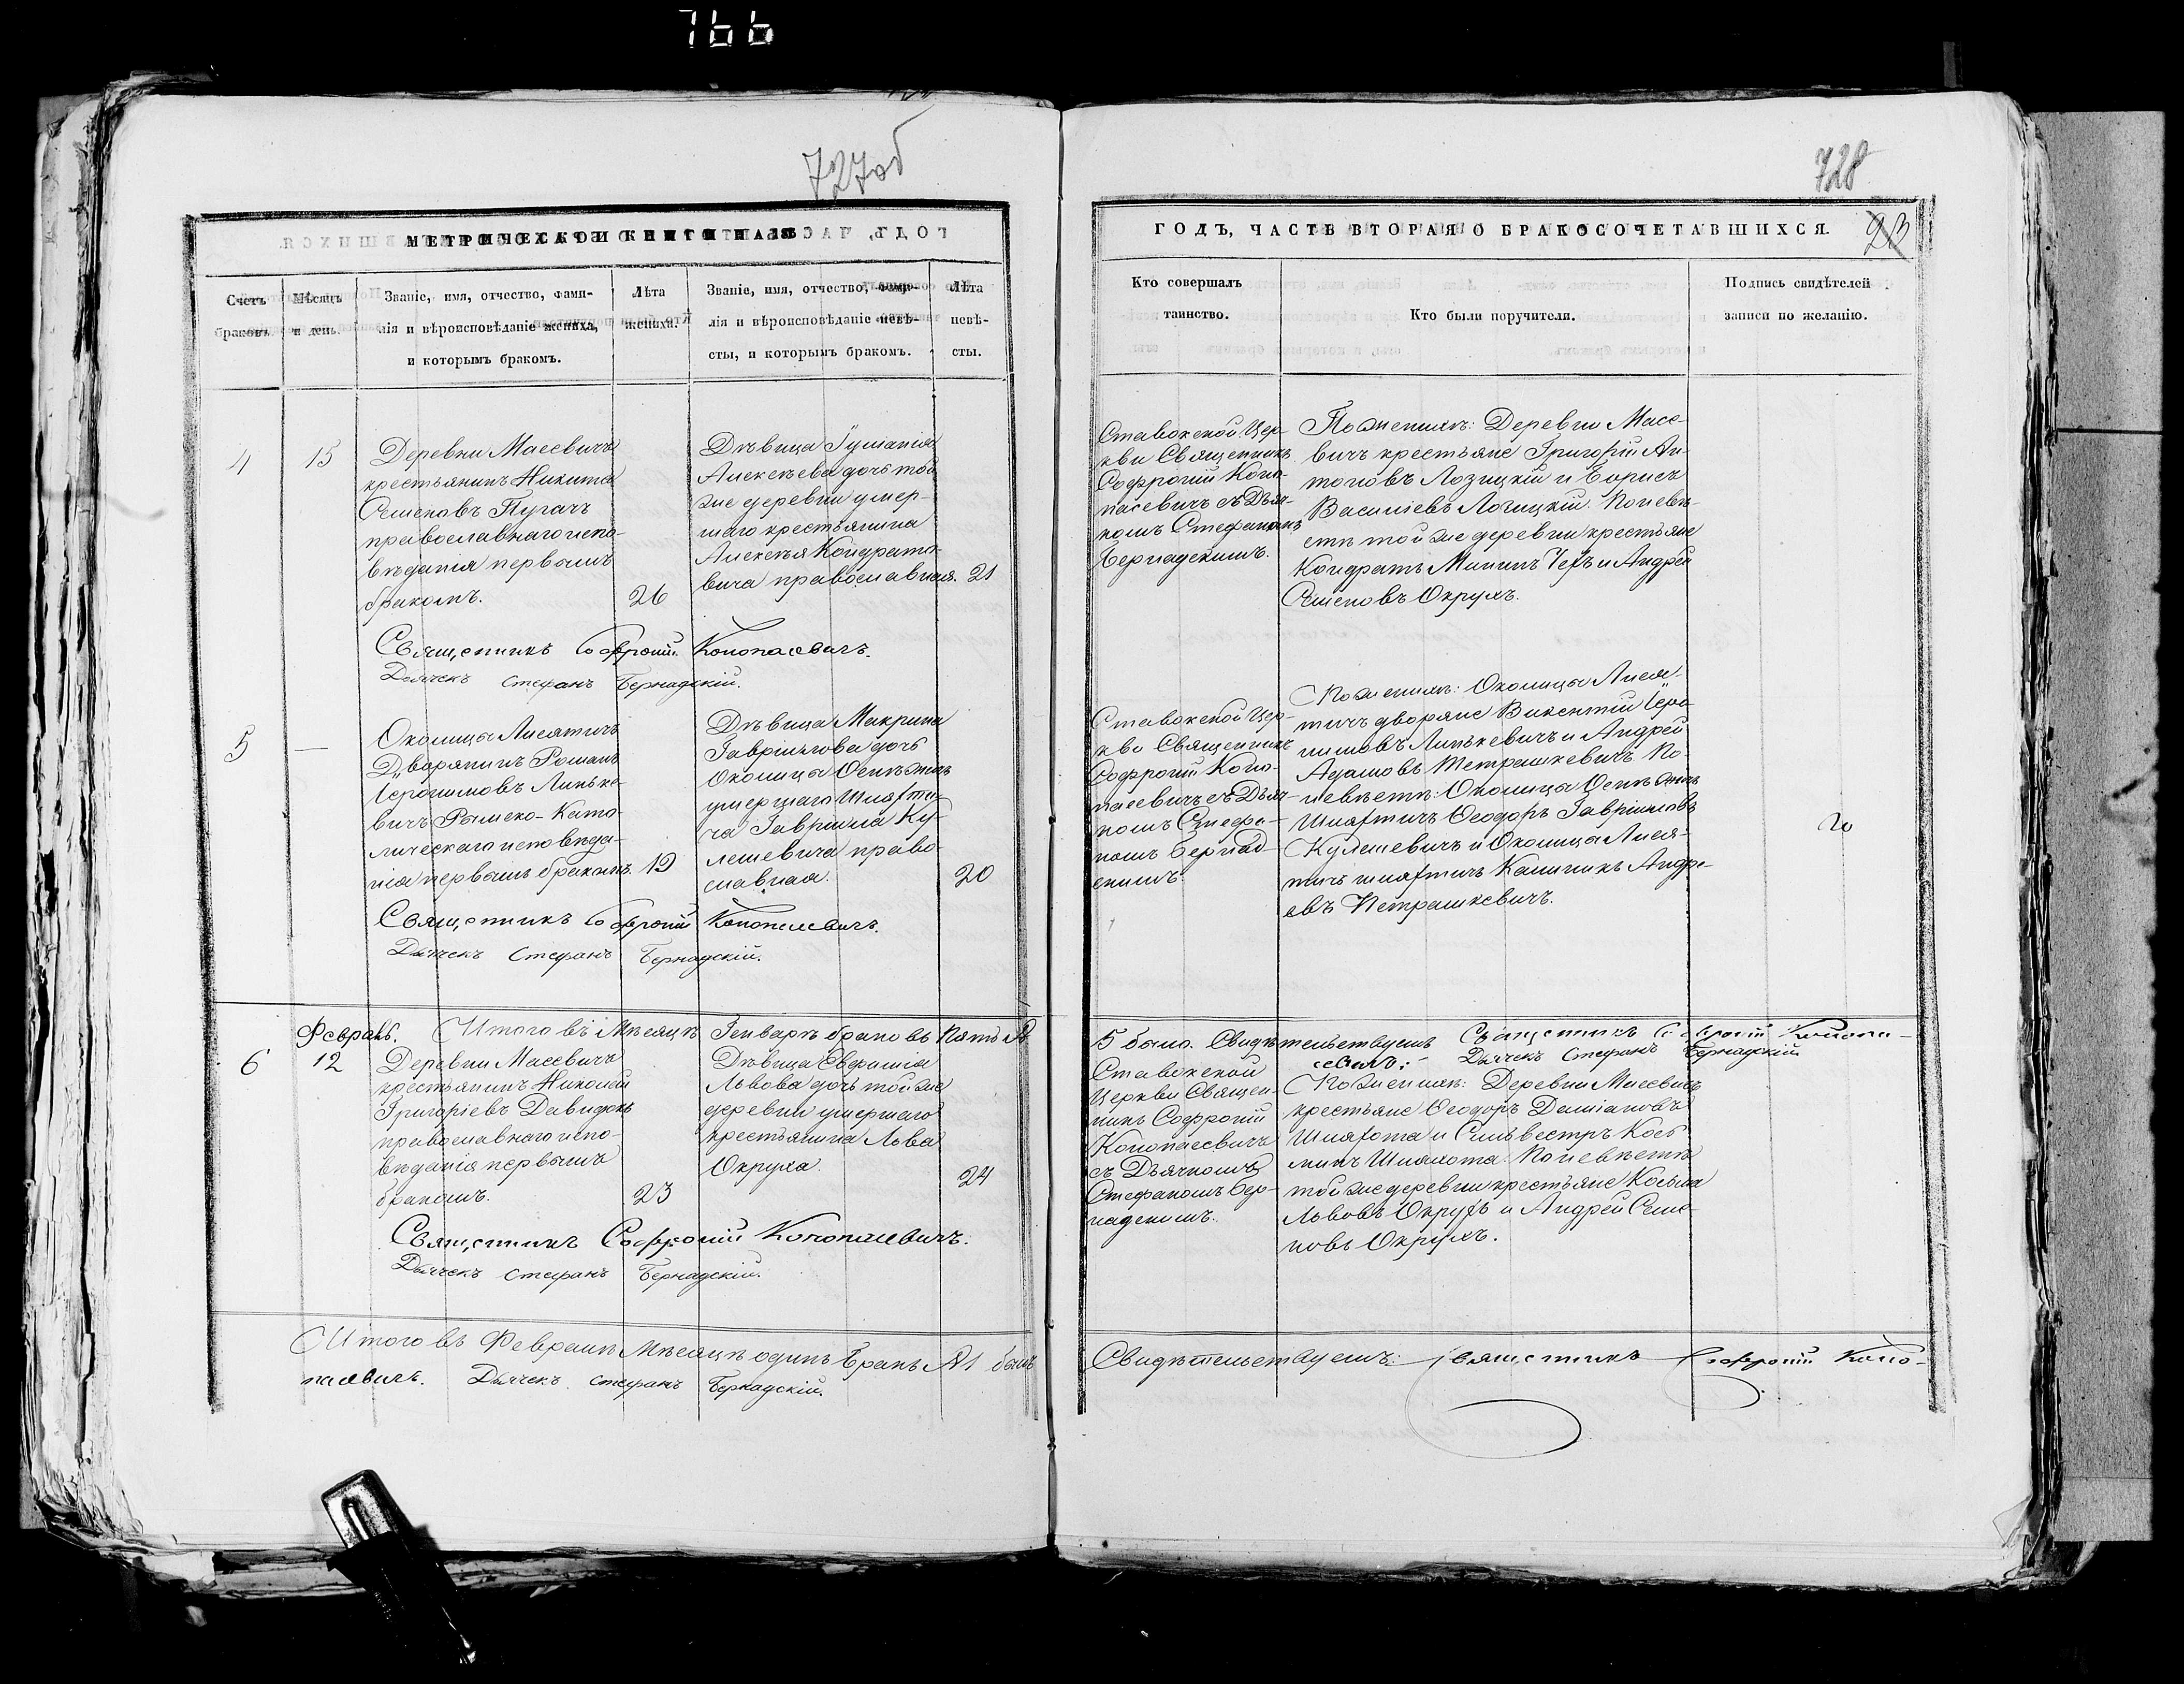 766
727об
МЕТРИЧЕСКОЙ КНИГИ НА
Счетъ
браковъ.
Мѣсяцъ
и день.
Званіе, имя, отчество, фами-
лія и вѣроисповѣданіе жениха,
и которымъ бракомъ.
Лѣта
жениха.
Званіе, имя, отчество, фами-
лія и вѣроисповѣданіе невѣ-
сты, и которымъ бракомъ.
Лѣта
невѣ-
сты.
4
15
Деревни Масевичъ
крестьянинъ Никита
Семеновъ Пугачъ
православнаго испо-
вѣданія первымъ
бракомъ.
26
Дѣвица Іуманія
Алексѣева дочь той
же деревни умер-
шаго крестьянина
Алексѣя Кондрато-
вича православная.
21
Священникъ Софроній Конопасевичъ.
Дьячекъ Стефанъ Бернадскій.
5
—
Околицы Лисятичъ
Дворянинъ Романъ
Іеронимовъ Линьке-
вичъ Римско-Като-
лическаго исповѣда-
нія первымъ бракомъ.
19
Дѣвица Макрина
Гавріилова дочь
Околицы Осетжичъ
умершаго Шляхти-
ча Гавріила Ку-
лешевича право-
славная.
20
Священникъ Софроній Конопасевичъ.
Дьячекъ Стефанъ Бернадскій.
Февраль. Итого въ Мѣсяцѣ Генварѣ браковъ Пять №
6
12
Деревни Масевичъ
крестьянинъ Николай
Григоріевъ Давидюкъ
православнаго испо-
вѣданія первымъ
бракомъ.
23
Дѣвица Евфимія
Львова дочь той же
деревни умершаго
крестьянина Льва
Окруха.
24
Священникъ Софроній Конопасевичъ.
Дьячекъ Стефанъ Бернадскій.
Итого въ Февралѣ Мѣсяцѣ одинъ Бракъ №1 былъ
пасевичъ. Дьячекъ Стефанъ Бернадскій.
728
ГОДЪ, ЧАСТЬ ВТОРАЯ О БРАКОСОЧЕТАВШИХСЯ.
23
Кто совершалъ
таинство.
Кто были поручители.
Подпись свидѣтелей
записи по желанію.
Ставокской Цер-
кви Священникъ
Софроній Коно-
пасевичъ съ Дьяч-
комъ Стефаномъ
Бернадскимъ.
По женихѣ: Деревни Масе-
вичъ крестьяне Григорій Ан-
тоновъ Лозицкій и Борисъ
Василіевъ Лозицкій. По невѣ-
стѣ той же деревни крестьяне
Кондратъ Мининъ Чехъ и Андрей
Семеновъ Окрухъ.
Ставокской Цер-
кви Священникъ
Софроній Коно-
пасевичъ съ Дьяч-
комъ Стефа-
номъ Бернад-
скимъ.
По женихѣ: Околицы Лися-
тичъ дворяне Викентій Іеро-
нимовъ Линькевичъ и Андрей
Адамовъ Петрашкевичъ По
невѣстѣ: Околицы Осетжичъ
Шляхтичъ Ѳеодоръ Гавріиловъ
Кулешевичъ и Околицы Лися-
тичъ шляхтичъ Каликикъ Андре-
евъ Петрашкевичъ.
5 было. Свидѣтельствуемъ Священникъ Софроній Конопа-
севичъ: Дьячекъ Стефанъ Бернадскій
Ставокской
Церкви Священ-
никъ Софроній
Конопасевичъ
съ Дьячкомъ
Стефаномъ Бер-
надскимъ.
По женихѣ: Деревни Масевичъ
крестьяне Ѳеодоръ Даміановъ
Шляхота и Сильвестръ Кось-
минъ Шляхота. По невѣстѣ
той же деревни крестьяне Косьма
Львовъ Окрухъ и Андрей Семе-
новъ Окрухъ.
Свидѣтельствуемъ: Священникъ Софроній Коно-